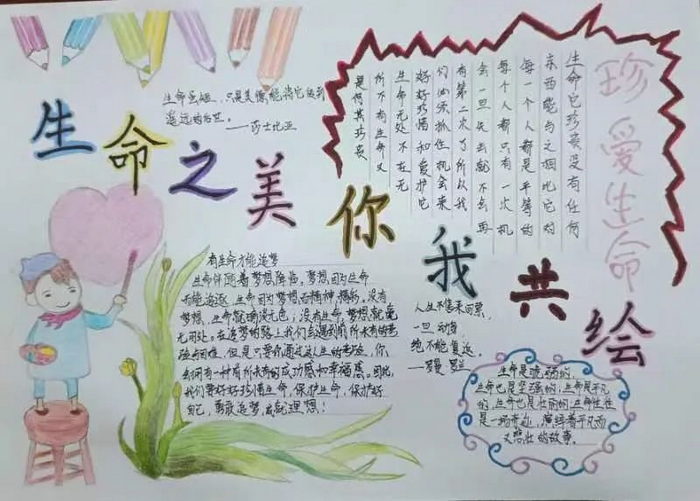 生命之美
你我共绘
珍爱生命
生命短促,只是美德能将它达到
遥远的后世。
——莎士比亚
生命它珍贵没有任何
东西能与之相比它对
每一个人都是平等的
每个人都只有一次机
会一旦失去就不会再
有第二次了所以我
们必须抓住机会来
好好珍惜和爱护它
生命无处不在无
所不有生命又
是何其珍贵
有生命才能追梦
生命伴随着梦想降临,梦想因为生命
而能追逐,生命因为梦想而精神,
梦想,生命就暗淡无色;没有生命,梦想就毫
无用处。在追梦的路上我们会遇到前所未有的
但是只要你通过这人生的考验,你
会拥有一种前所未有的成功感和幸福感。因此,
我们要好好珍惜生命,保护生命,保护好
自己,勇敢追梦,成就理想!
人生不售来回票,
一旦动身,
绝不能复返。
——罗曼·罗兰
生命是脆弱的,
生命也是坚强的;生命是平凡
的,生命也是壮丽的。生命往往
是一场奇迹,演绎着平凡而
又悲壮的故事。